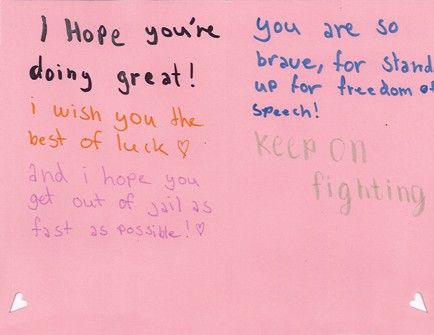 I Hope you're
doing great!
i wish you the
best of luck ♡
and i hope you
get out of jail as
fast as possible! ♡
you are so
brave, for stand
up for freedom of
speech!
Keep on
fighting